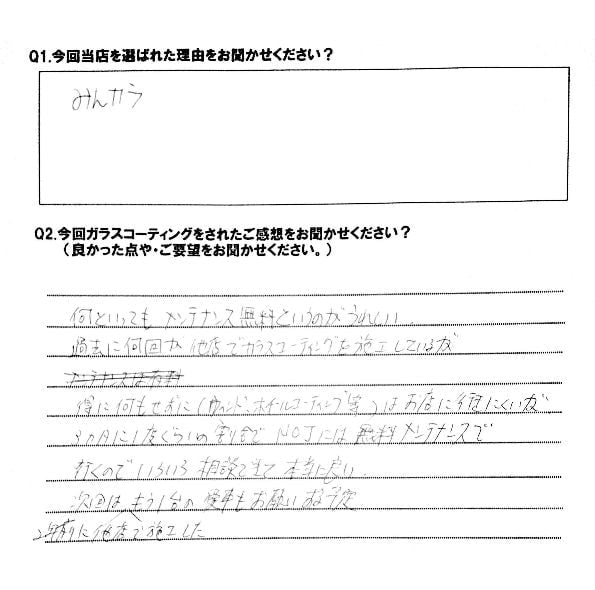 Q1.今回当店を選ばれた理由をお聞かせください？
みんカラ
Q2.今回ガラスコーティングをされたご感想をお聞かせください？
（良かった点や・ご要望をお聞かせください。）
何といってもメンテナンス無料というのがうれしい
過去に何回か他店でガラスコーティングを施工しているが
メンテナンスは有料
特に何もせずに（ウィンド、ホイールコーティング等）はお店に行きにくいが
3カ月に1度ぐらいの割合で NOJには無料メンテナンスで
行くのでいろいろ相談できて本当に良い.
次回はもう1台の愛車もお願いする予定
2年前に他店で施工した